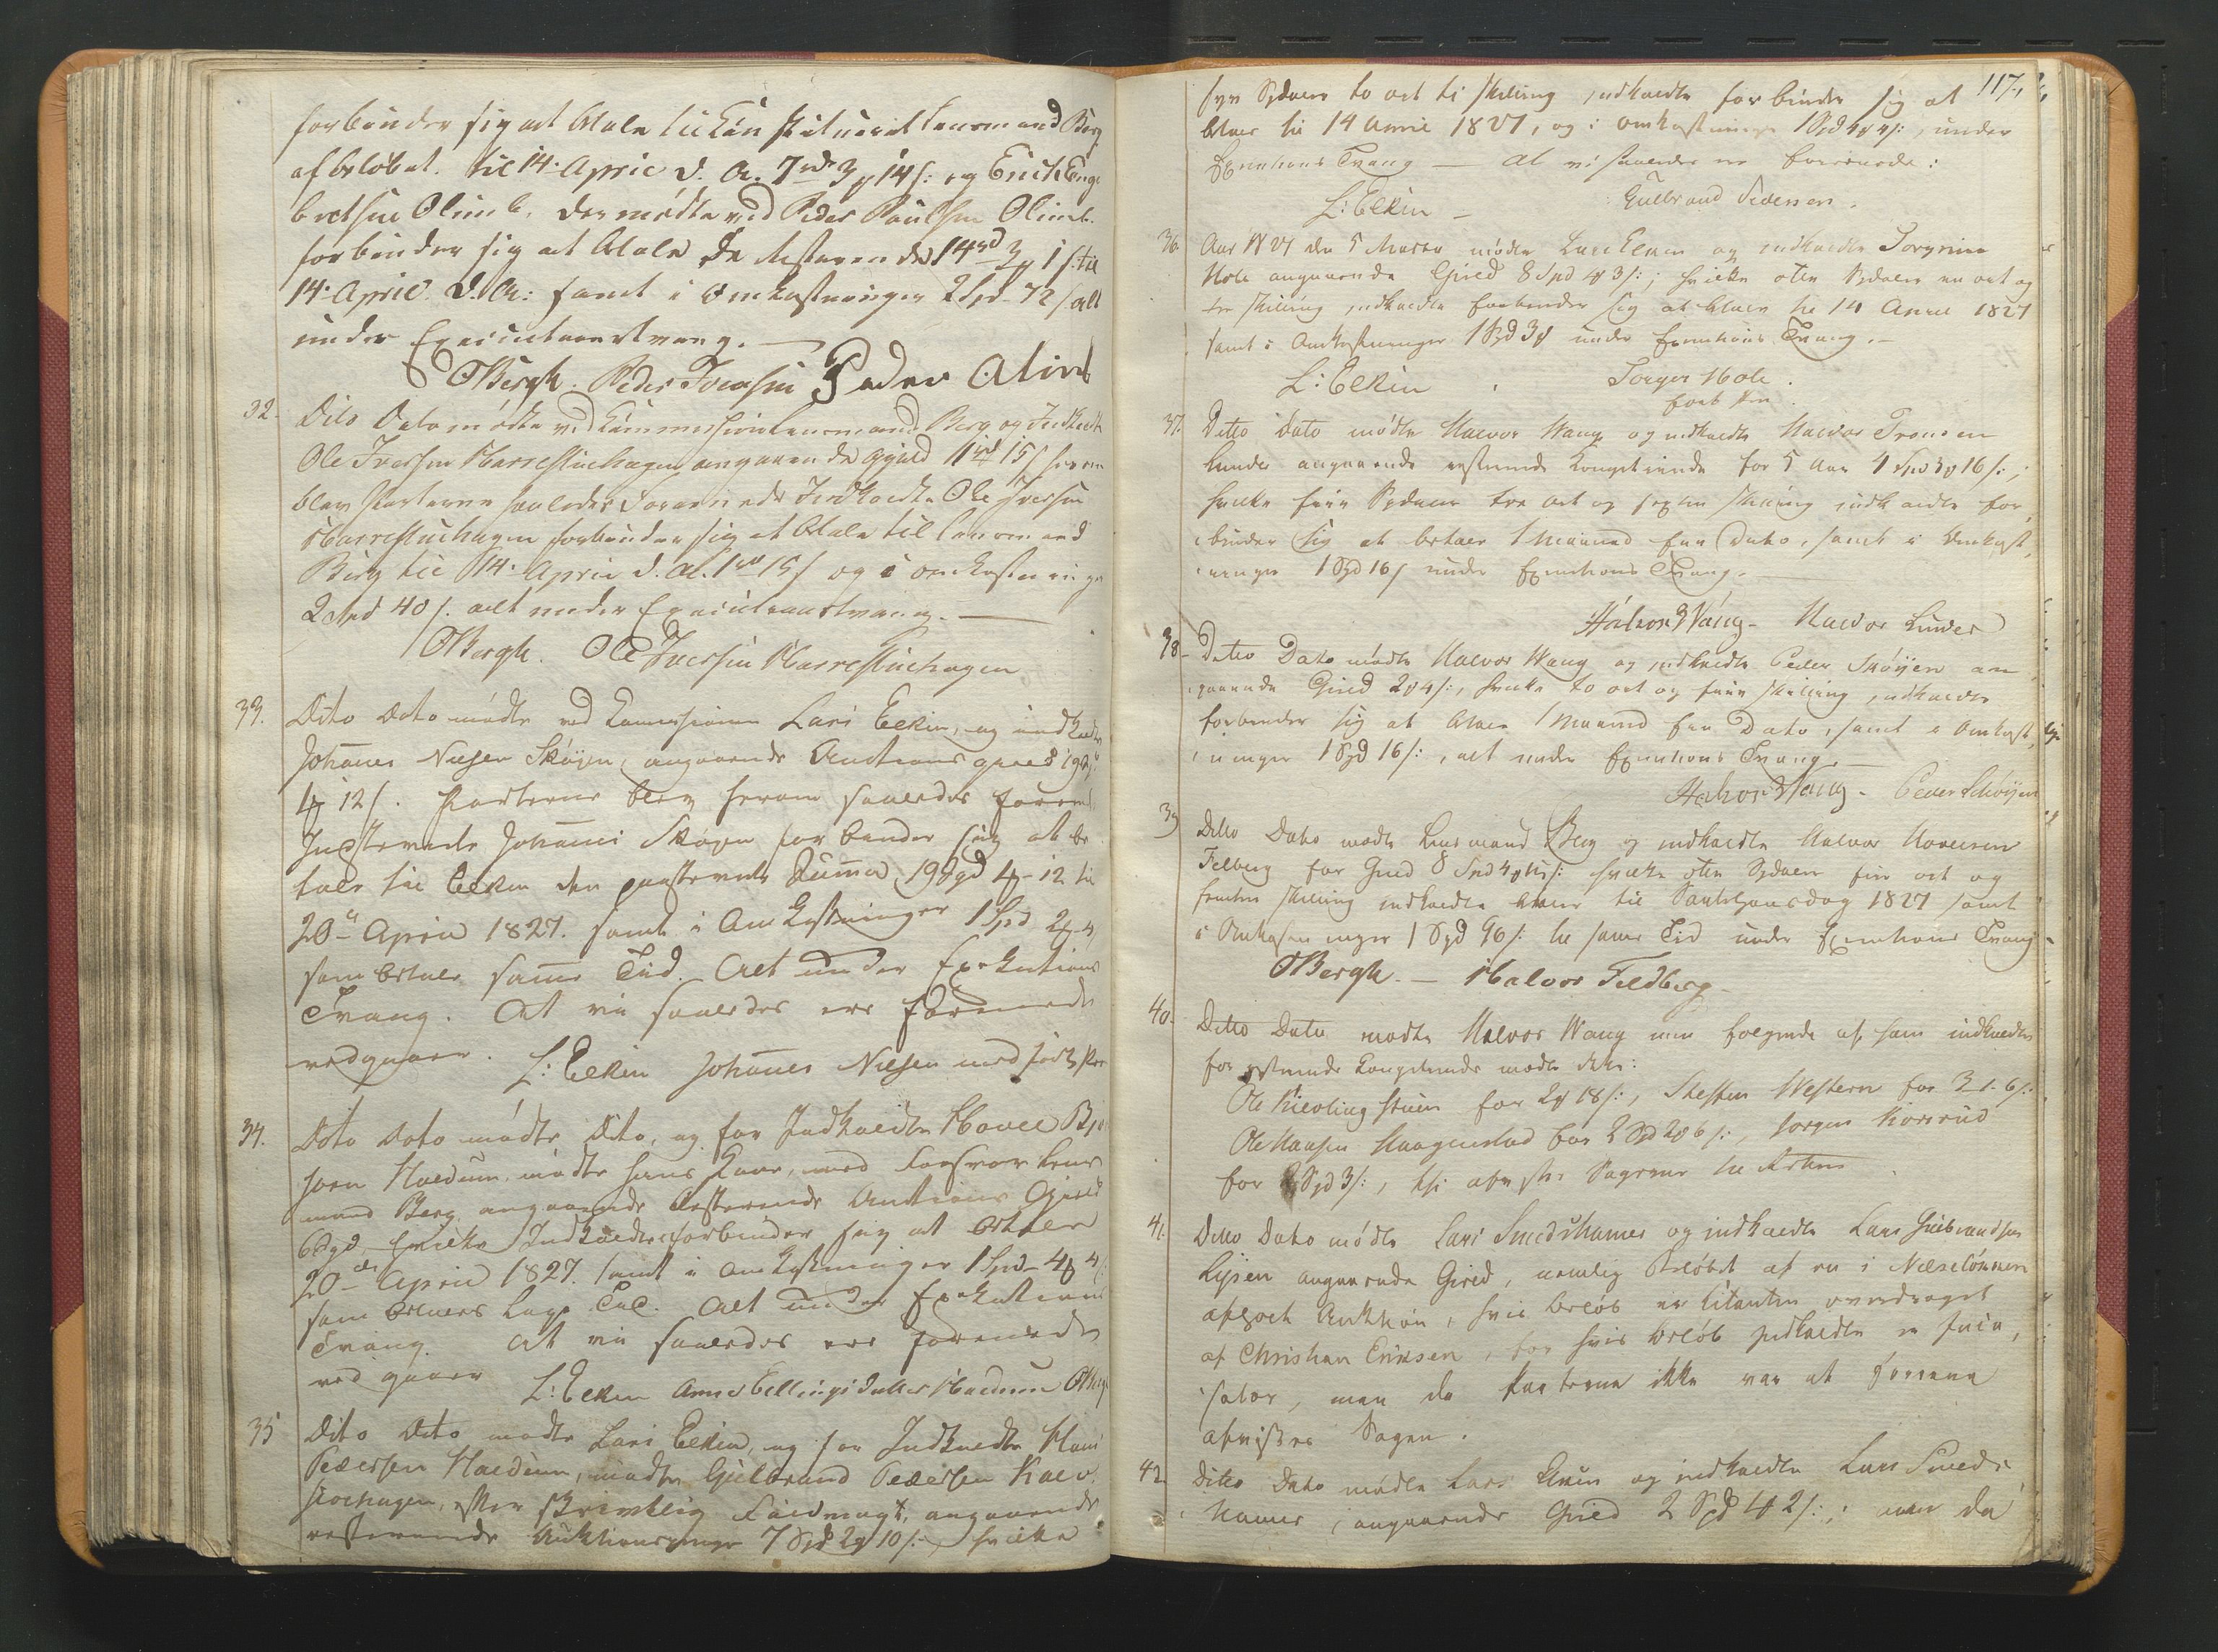 forbinder sig at betale til Constitueret Lensmand Berg
af beløbet. til 14 April d. A. 7 3 14 s: og Erich Enge
bretsen Olimb, der mødte ved Peder Poulsen Olimb.
forbinder sig at betale de resterende 14 3 1 s. til
14 April d. A: samt i Omkostninger 2 Spd 72 s alt
under Executionstvang.
OBergh. Peder Iversen Peder Olimb
32. Dito Dato mødte ved Commission Lensmand Berg og Indkaldte
Ole Iversen Harrestuehagen angaaende gjeld 1 15 s herom
blev Parterne saaledes Forenede Indkaldte Ole Iversen
Harrestuehagen forbinder sig at betale til Lensmand
Berg til 14 April d. A. 1 15 s og i omkostninger
2 Spd 40 s. alt under Executionstvang.
OBergh. Ole Iversen Harrestuehagen
33. Dito Dato mødte ved Commissionen Lars Elken, og indkaldte
Johannes Nielsen Skøyen, angaaende Auctions gield 19
4 12 s. Parterne blev herom saaledes forenet
Indstevnte Johannes Skøyen forbinder sig at be
tale til Elken den paastevnte Summa 19 Spd 4 - 12 til
20de April 1827. samt i Omkostninger 1 Spd 2 4
som betales samme Tiid. Alt under Exekutions
Tvang. At vi saaledes ere forenede
vedgaaer. L: Elken Johannes Nielsen med ført Pen
34. Dito Dato mødte Dito, og for Indkaldte Hovel
Haldum, mødte hans Kone, med Forsvar Lens
mand Berg angaaende Resterende Auctions Gjeld
6 Spd, hvilke Indkaldte forbinder sig at betale
20de April 1827. samt i Omkostninger 1 Spd 4 4
som betales Tiid. Alt under Exekutions
Tvang. At vi saaledes ere forenede
ved gaaer L: Elken Anne Ellingsdatter Haldum OBergh
35 Dito Dato mødte Lars Elken, og for Indkaldte Hans
Pedersen Haldum, mødte Gulbrand Pedersen
hagen, efter Skrivtlig Fuldmagt, angaaende
resterende Auktionspenge 7 Spd 2 10 s:, hvilke
117.
syv Spdaler to ort ti skilling indkaldte forbinder sig at
betale til 14 April 1827, og i omkostninger 1 Spd 4 4 s:, under
Exeutions Tvang — At vi saaledes er forenede:
L: Elkin — Gulbrand Pedersen.
36. Aar 1827 den 5 Marts mødte Lars Elken og indkaldte Torger
Hole angaaende Gield 8 Spd 1 3 s:; hvilke otte Spdaler en ort og
tre skilling indkaldte forbinder sig at betale til 14 April 1827
samt i Omkostninger 1 Spd 3 under Exeutions Tvang.—
L: Elkin . Torger Hole.
ført Pen.
37. Ditto Dato mødte Halvor Wang og indkaldte Halvor Tronsen
Lunde angaaende resterende Kongetiende for 5 Aar 4 Spd 3 16 s:;
hvilke fiire Spdaler tre ort og sexten skilling indkaldte for
binder sig at betale 1 Maaned fra Dato, samt i Omkost
ninger 1 Spd 16 s under Exeutions Tvang.
Halvor Wang - Halvor Lunde
38 - Ditto Dato mødte Halvor Wang og indkaldte Peder Skøyen an
gaaende Gield 2 4 s:, hvilke to ort og fiire skilling indkaldte
forbinder sig at betale 1 Maaned fra Dato, samt i Omkost
ninger 1 Spd 16 s:, alt under Exeutions Tvang.
Halvor Wang - Peder Schøyen
39 Ditto Dato mødte Lensmand Berg og indkaldte Halvor Hovelsen
Felberg for Gield 8 Spd 4 s: hvilke otte Spdaler fire ort og
femten skilling indkaldte betaler til Sanktjansdag 1827 samt
i Omkostninger 1 Spd 96 s: til samme Tid under Exeutions Tvang
OBergh. — Halvor Feldberg
40. Ditto Dato mødte Halvor Wang men følgende af ham indkaldte
for resterende Kongetiende mødte ikke:
Ole stuen for 2 18 s:, Steffen Western for 3 1. 6 s:
Ole Hansen Haagenstad for 2 Spd 2 6 s:, Jørgen Korsrud
for 2 Spd 3 s:, thi afvistes Sagerne til Retten
41. Ditto Dato mødte Lars Smedshamer og indkaldte Lars Gulbrandsen
Lysen angaaende Gield, nemlig Beløbet af en i Nilselønnen
afholdt Auktion, hvis beløb er Citanten overdraget
af Christian Eriksen, for hvis beløb indkaldte er
, men da Parterne ikke var at forene
afvistes Sagen.
42. Ditto Dato mødte Lars Elken og indkaldte Lars Smeds
hamer, angaaende Gield 2 Spd 4 2 s:; men da